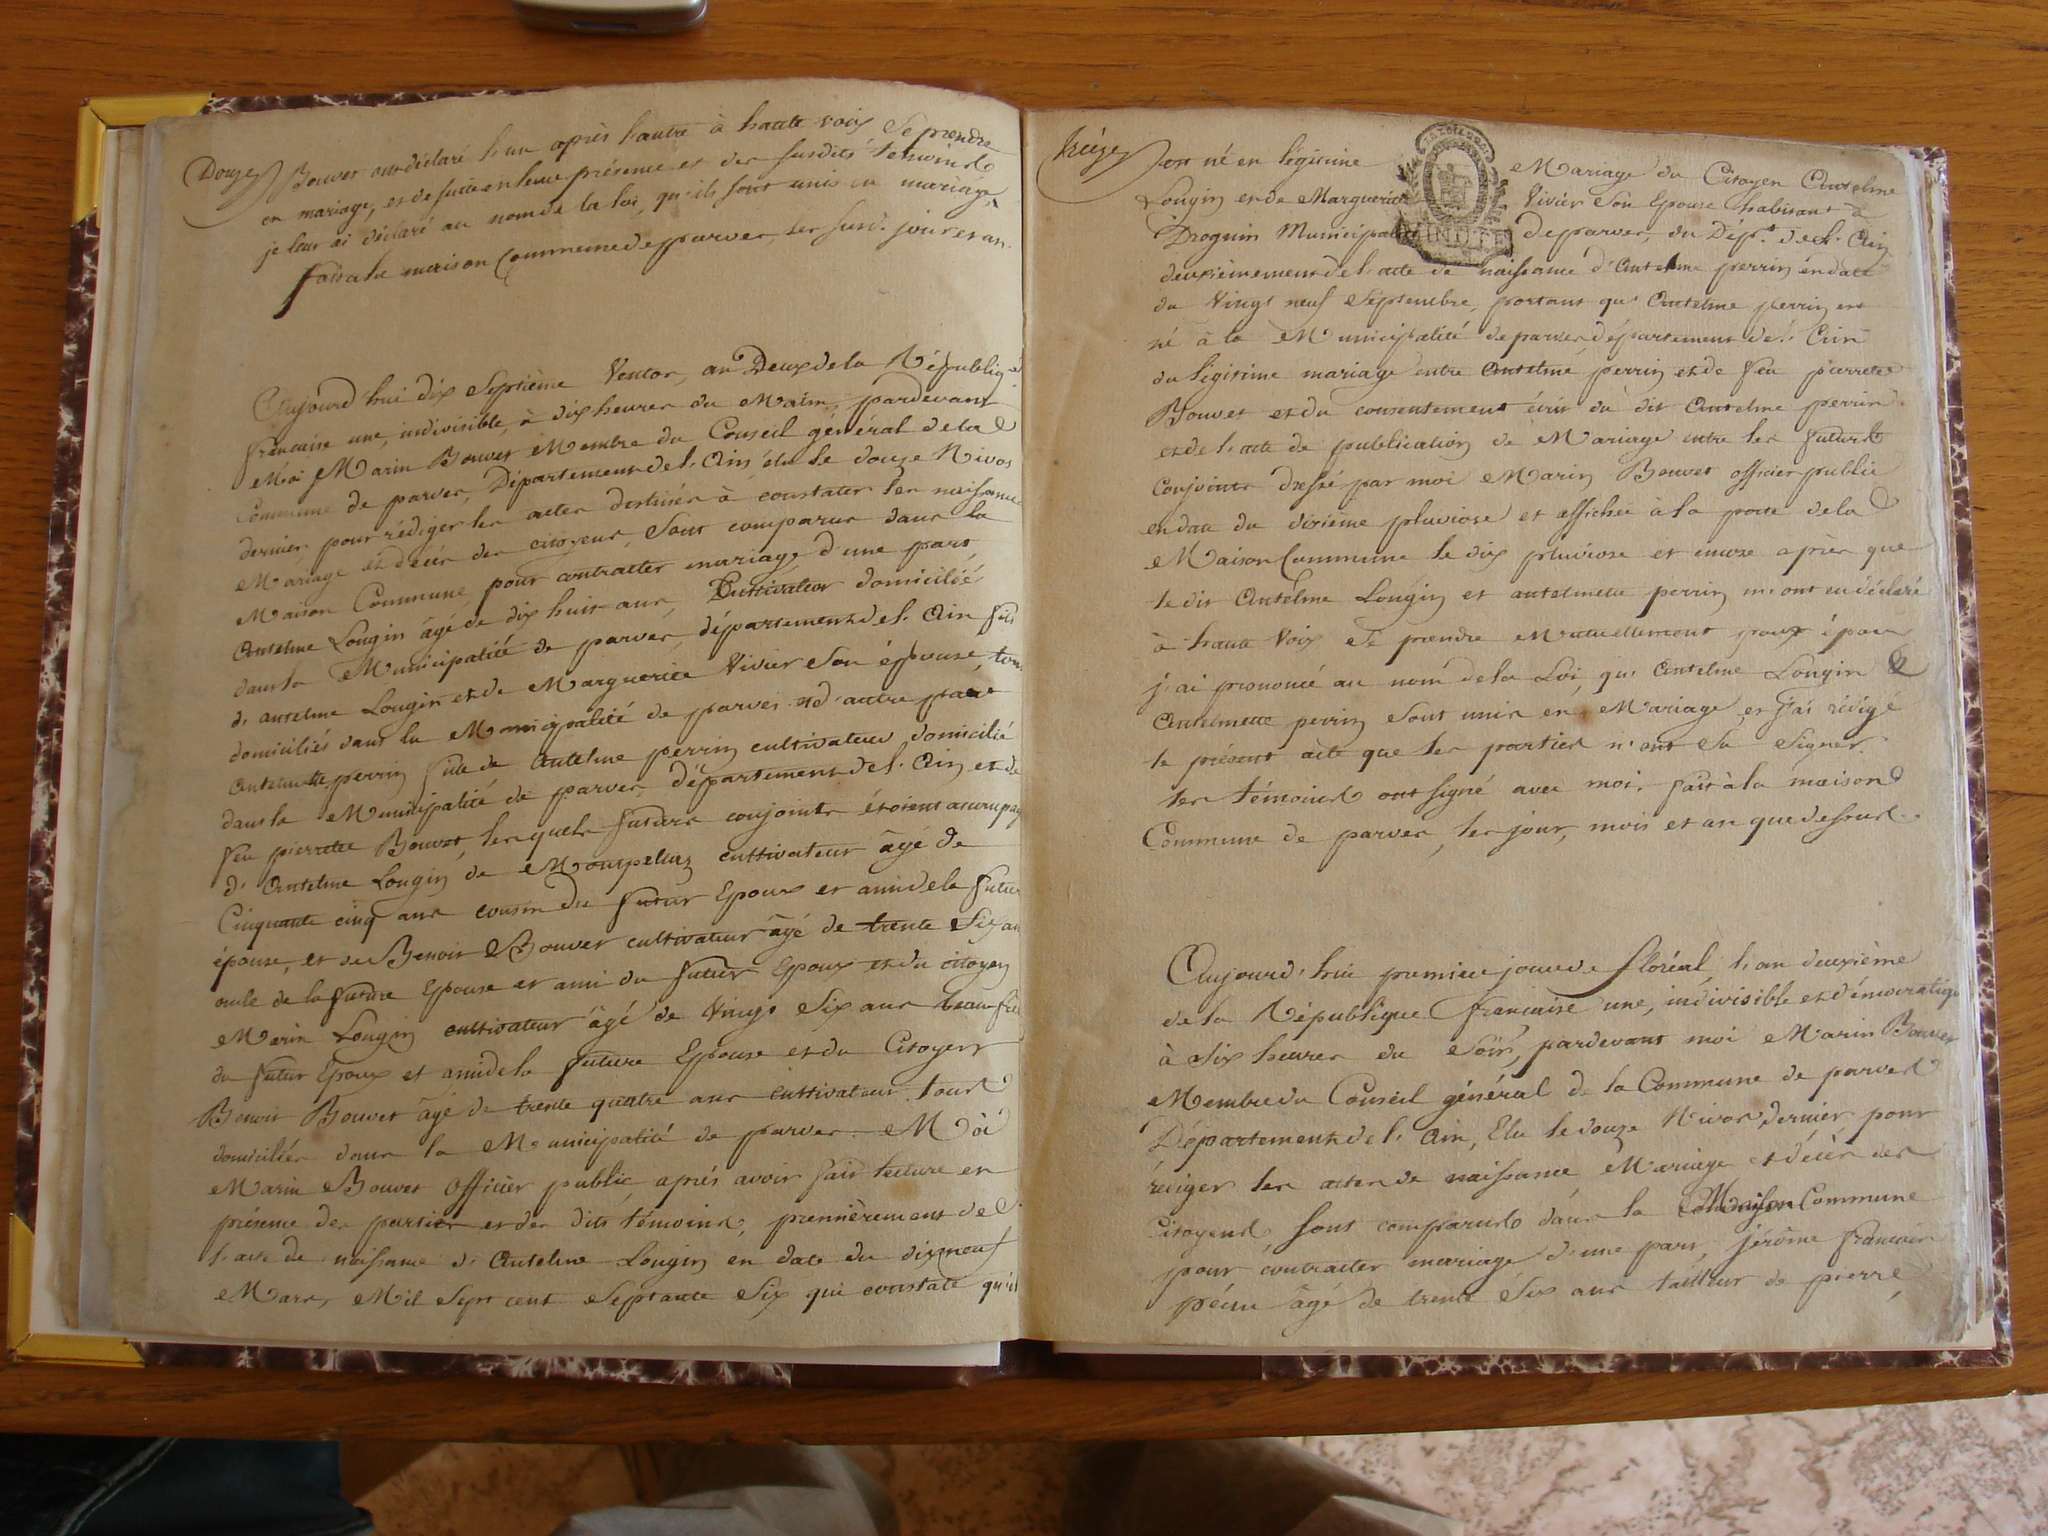 Douze
Bouvet ont déclaré l'un après l'autre à haute voix se prendre
en mariage, et de suite en leur présence et des susdits témoins
je leur ai déclaré au nom de la loi, qu'ils sont unis en mariage,
fait à la maison Commune de parves, les susd. jour et an.
Aujourd'hui dix Septième Ventos, an Deux de la République
francaise une, indivisible, à dix heures du Matin, pardevant
Moi Marin Bouvet Membre du Conseil général de la
Commune de parves, Département de l'Ain élu le douze Nivos
dernier, pour rédiger les actes destinés à constater les naissances
Mariage et décès des citoyens, Sont comparus dans la
Maison Commune, pour contracter mariage d'une part,
Antelme Longin âgé de dix huit ans, Cultivateur domicilié
dans la Municipalité de parves, département de l'Ain fils
d'antelme Longin et de Marguerite Vivier Son épouse, tous
domiciliés dans la Municipalité de parves et d'autre part
antelmette perrin fille de Antelme perrin cultivateur domicilié
dans la Municipalité de parves, département de l'Ain et de
feu pierrette Bouvet, lesquels futurs conjoints étoient accompag
d'Antelme Longin de cultivateur âgé de
Cinquante cinq ans cousin du futur Epoux et ami de la future
épouse, et de Benoit Bouvet cultivateur âgé de trente Six an
oncle de la future Epouse et ami du futur Epoux et du citoyen
Marin Longin cultivateur âgé de Vingt Six ans beau fre
du futur Epoux et ami de la future Epouse et du Citoyen
Benoit Bouvet âgé de trente quatre ans cultivateur tous
domiciliés dans la Municipalité de parves. Moi
Marin Bouvet Officier public, après avoir fait lecture en
présence des parties et des dits témoins, premièrement de
l'acte de naissance d'Antelme Longin en date du dix neuf
Mars, Mil Sept cent Septante Six qui constate qu'il
treize
est né en légitime Mariage du Citoyen Antelme
Longin et de Marguerite Vivier Son Epouse habitant à
Drognin Municipalité de parves, du Dépt. de l'Ain
MINUTE
deuxièmement de l'acte de naissance d'Antelme perrin en date
du Vingt neuf Septembre, portant qu' Antelme perrin est
né à la Municipalité de parves département de l'Ain
du légitime mariage entre Antelme perrin et de feu pierrette
Bouvet et du consentement écrit du dit Antelme perrin
et de l'acte de publication de Mariage entre les futurs
conjoints dressé par moi Marin Bouvet officier public
en date du dixième pluviose et affichée à la porte de la
Maison Commune le dix pluviose et encore après que
le dit Antelme Longin et antelmette perrin m'ont eu déclaré
à haute Voix Se prendre Mutuellement pour époux
j'ai prononcé au nom de la Loi, qu' Antelme Longin &
Antelmette perrin Sont unis en Mariage, et j'ai rédigé
le présent acte que les parties n'ont Su Signer.
les témoins ont signé avec moi. fait à la maison
Commune de parves, les jour, mois et an que dessus.
Aujourd'hui premier jour de floréal, l'an deuxième
de la République francaise une, indivisible et démocratique
à Six heures du Soir, pardevant moi Marin Bouvet
Membre du Conseil général de la Commune de parves
Département de l'Ain, Elu le douze Nivos dernier pour
rédiger les actes de naissance Mariage et décès des
Citoyens, Sont comparus dans la Maison Commune
pour contracter mariage d'une part, jérôme francois
âgé de trente Six ans tailleur de pierre